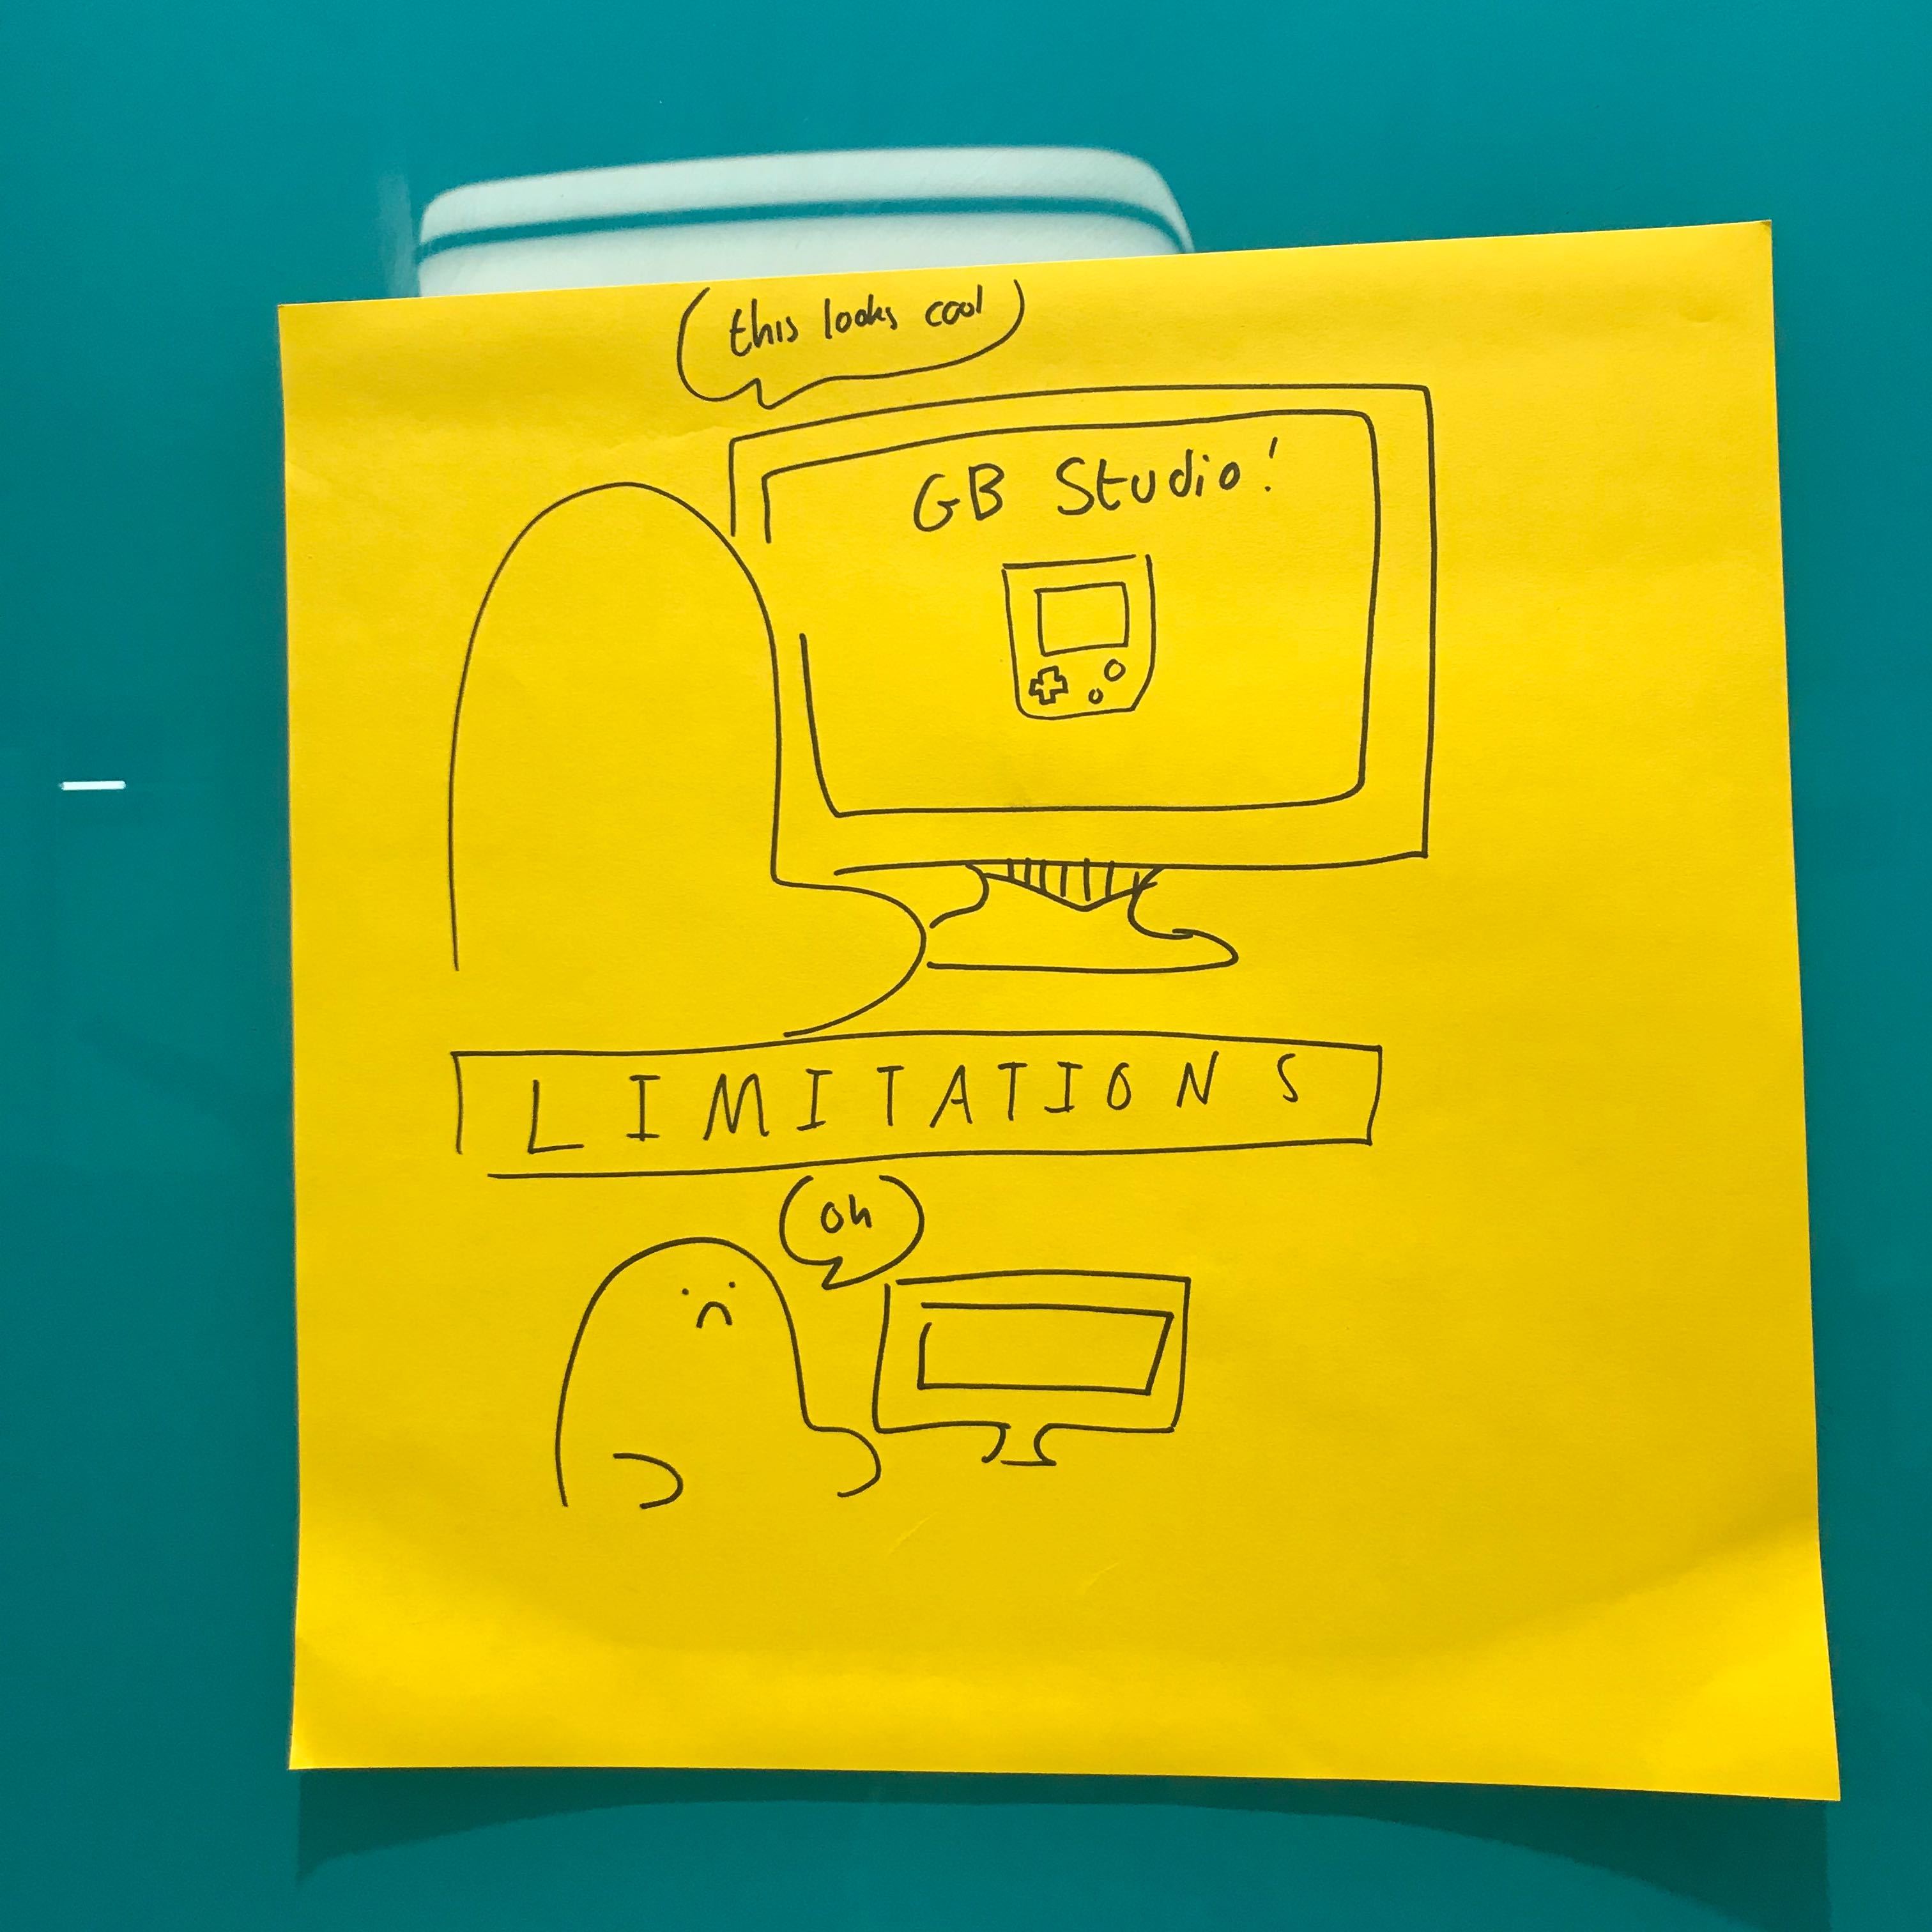 this looks cool
GB Studio!
LIMITATIONS
oh